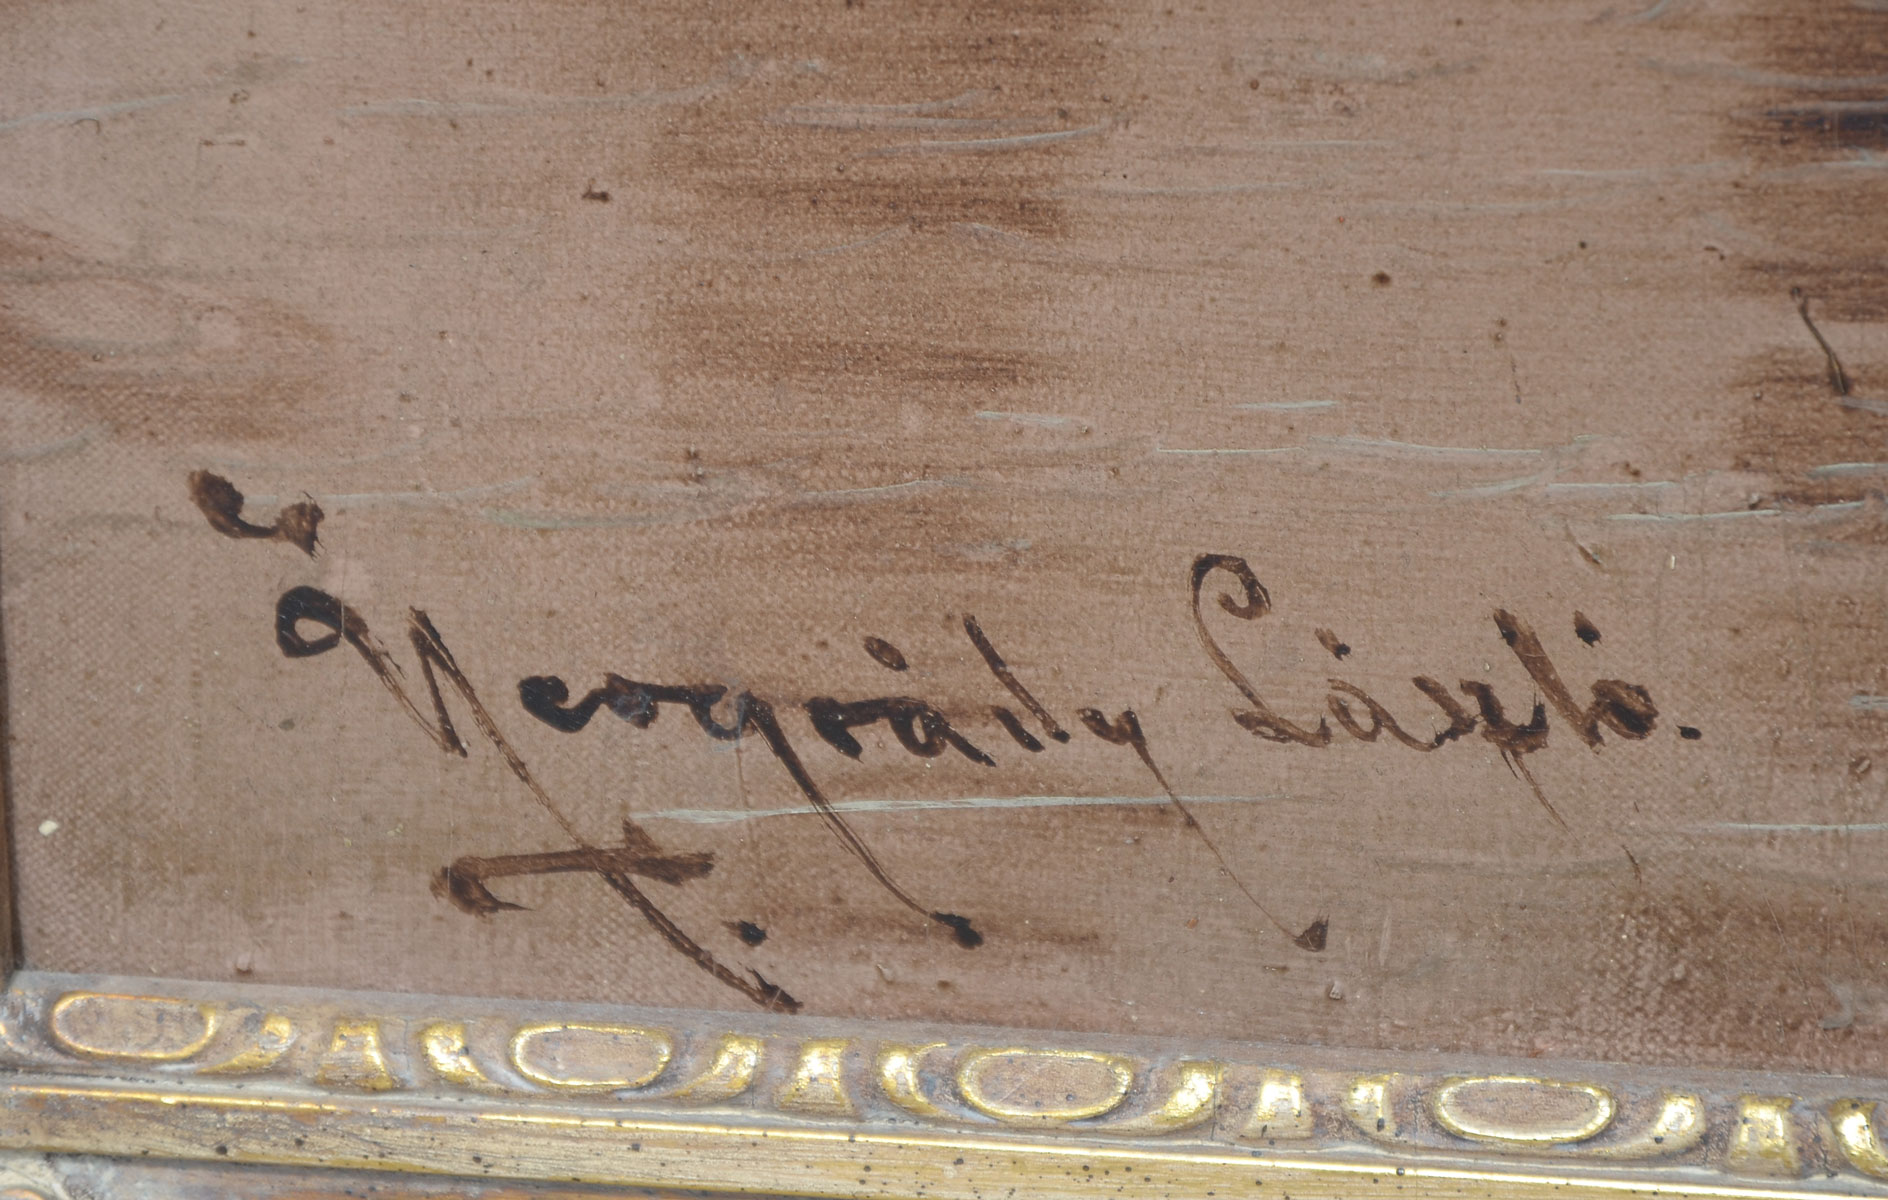 Neogrády László.